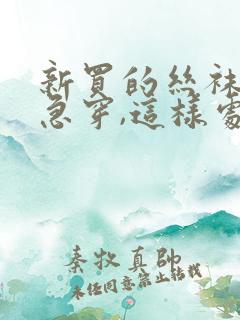 新買的絲袜
急穿,這樣處
秦牧真帥
未经同意禁止转载